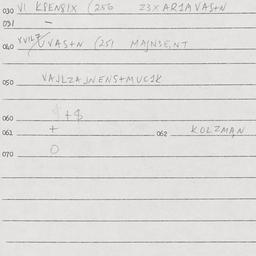 030 VI KSENSIX (256 23X ARIAVAS+N
031 –
040 UVAS+N (251 MAJNSE,NT
050 VAJLZAJWENS+MUCIK
060 $+$
061 + 062 KOLZMAN
070 O